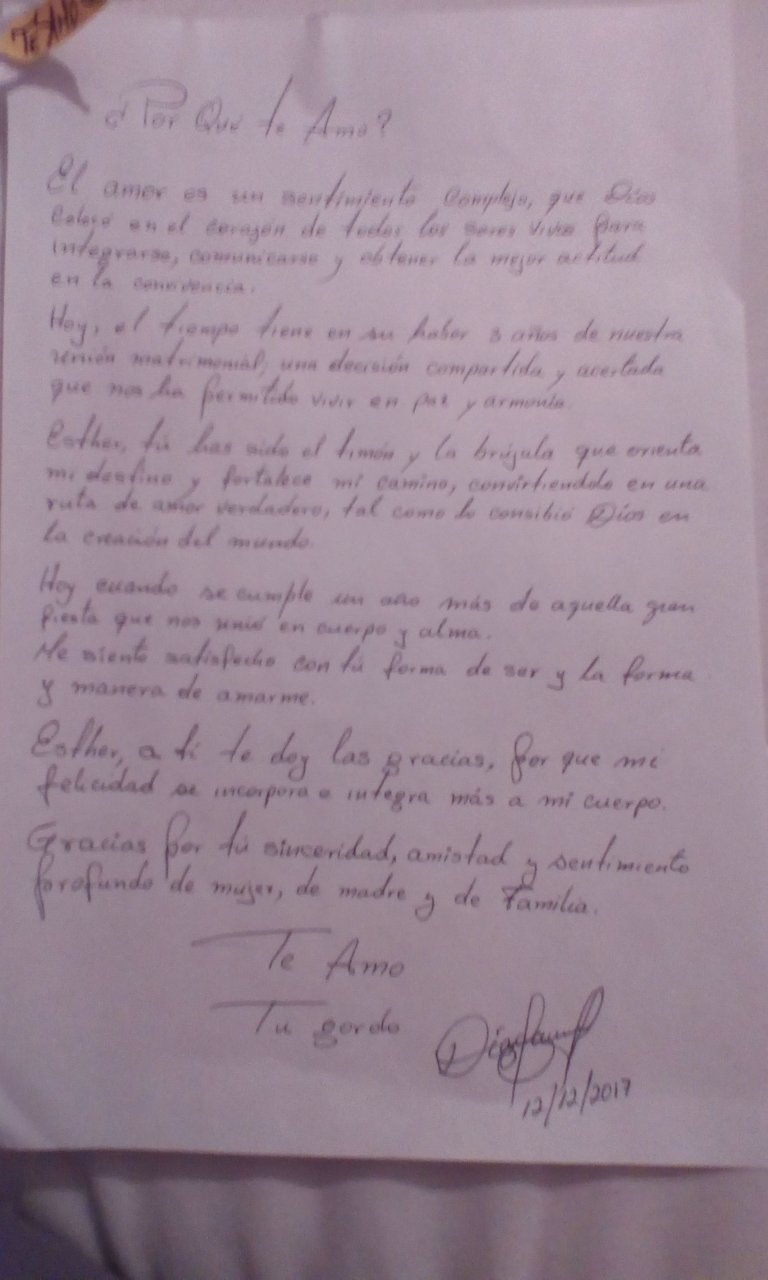 Te Amo
¿Por Qué te Amo?
El amor es un sentimiento complejo, que Dios
coloco en el corazón de todos los seres vivos para
integrarse, comunicarse y obtener la mejor actitud
en la convivencia.
Hoy, el tiempo tiene en su haber 3 años de nuestra
unión matrimonial, una decisión compartida y acertada
que nos ha permitido vivir en paz y armonía.
Esther, tú has sido el timón y la brújula que orienta
mi destino y fortalece mi camino, convirtiendolo en una
ruta de amor verdadero, tal como lo consibió Dios en
la creación del mundo.
Hoy cuando se cumple un año más de aquella gran
fiesta que nos unió en cuerpo y alma.
Me siento satisfecho con tú forma de ser y la forma
y manera de amarme.
Esther, a ti te doy las gracias, por que mi
felicidad se incorpora e integra más a mi cuerpo.
Gracias por tú sinceridad, amistad y sentimiento
profundo de mujer, de madre y de Familia.
Te Amo
Tu gordo
12/12/2017